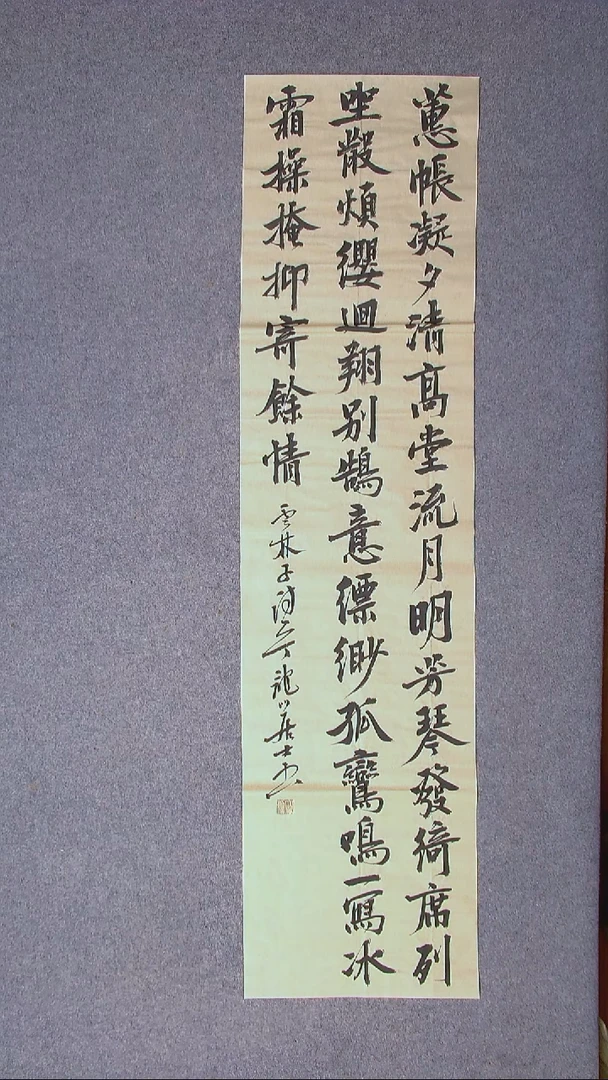 蕙帳凝夕清高堂流月明芳琴發綺席列
坐散煩纓迴翔別鵠意縹緲孤鸞鳴一寫冰
霜操掩抑寄餘情
雲林子詩
居士